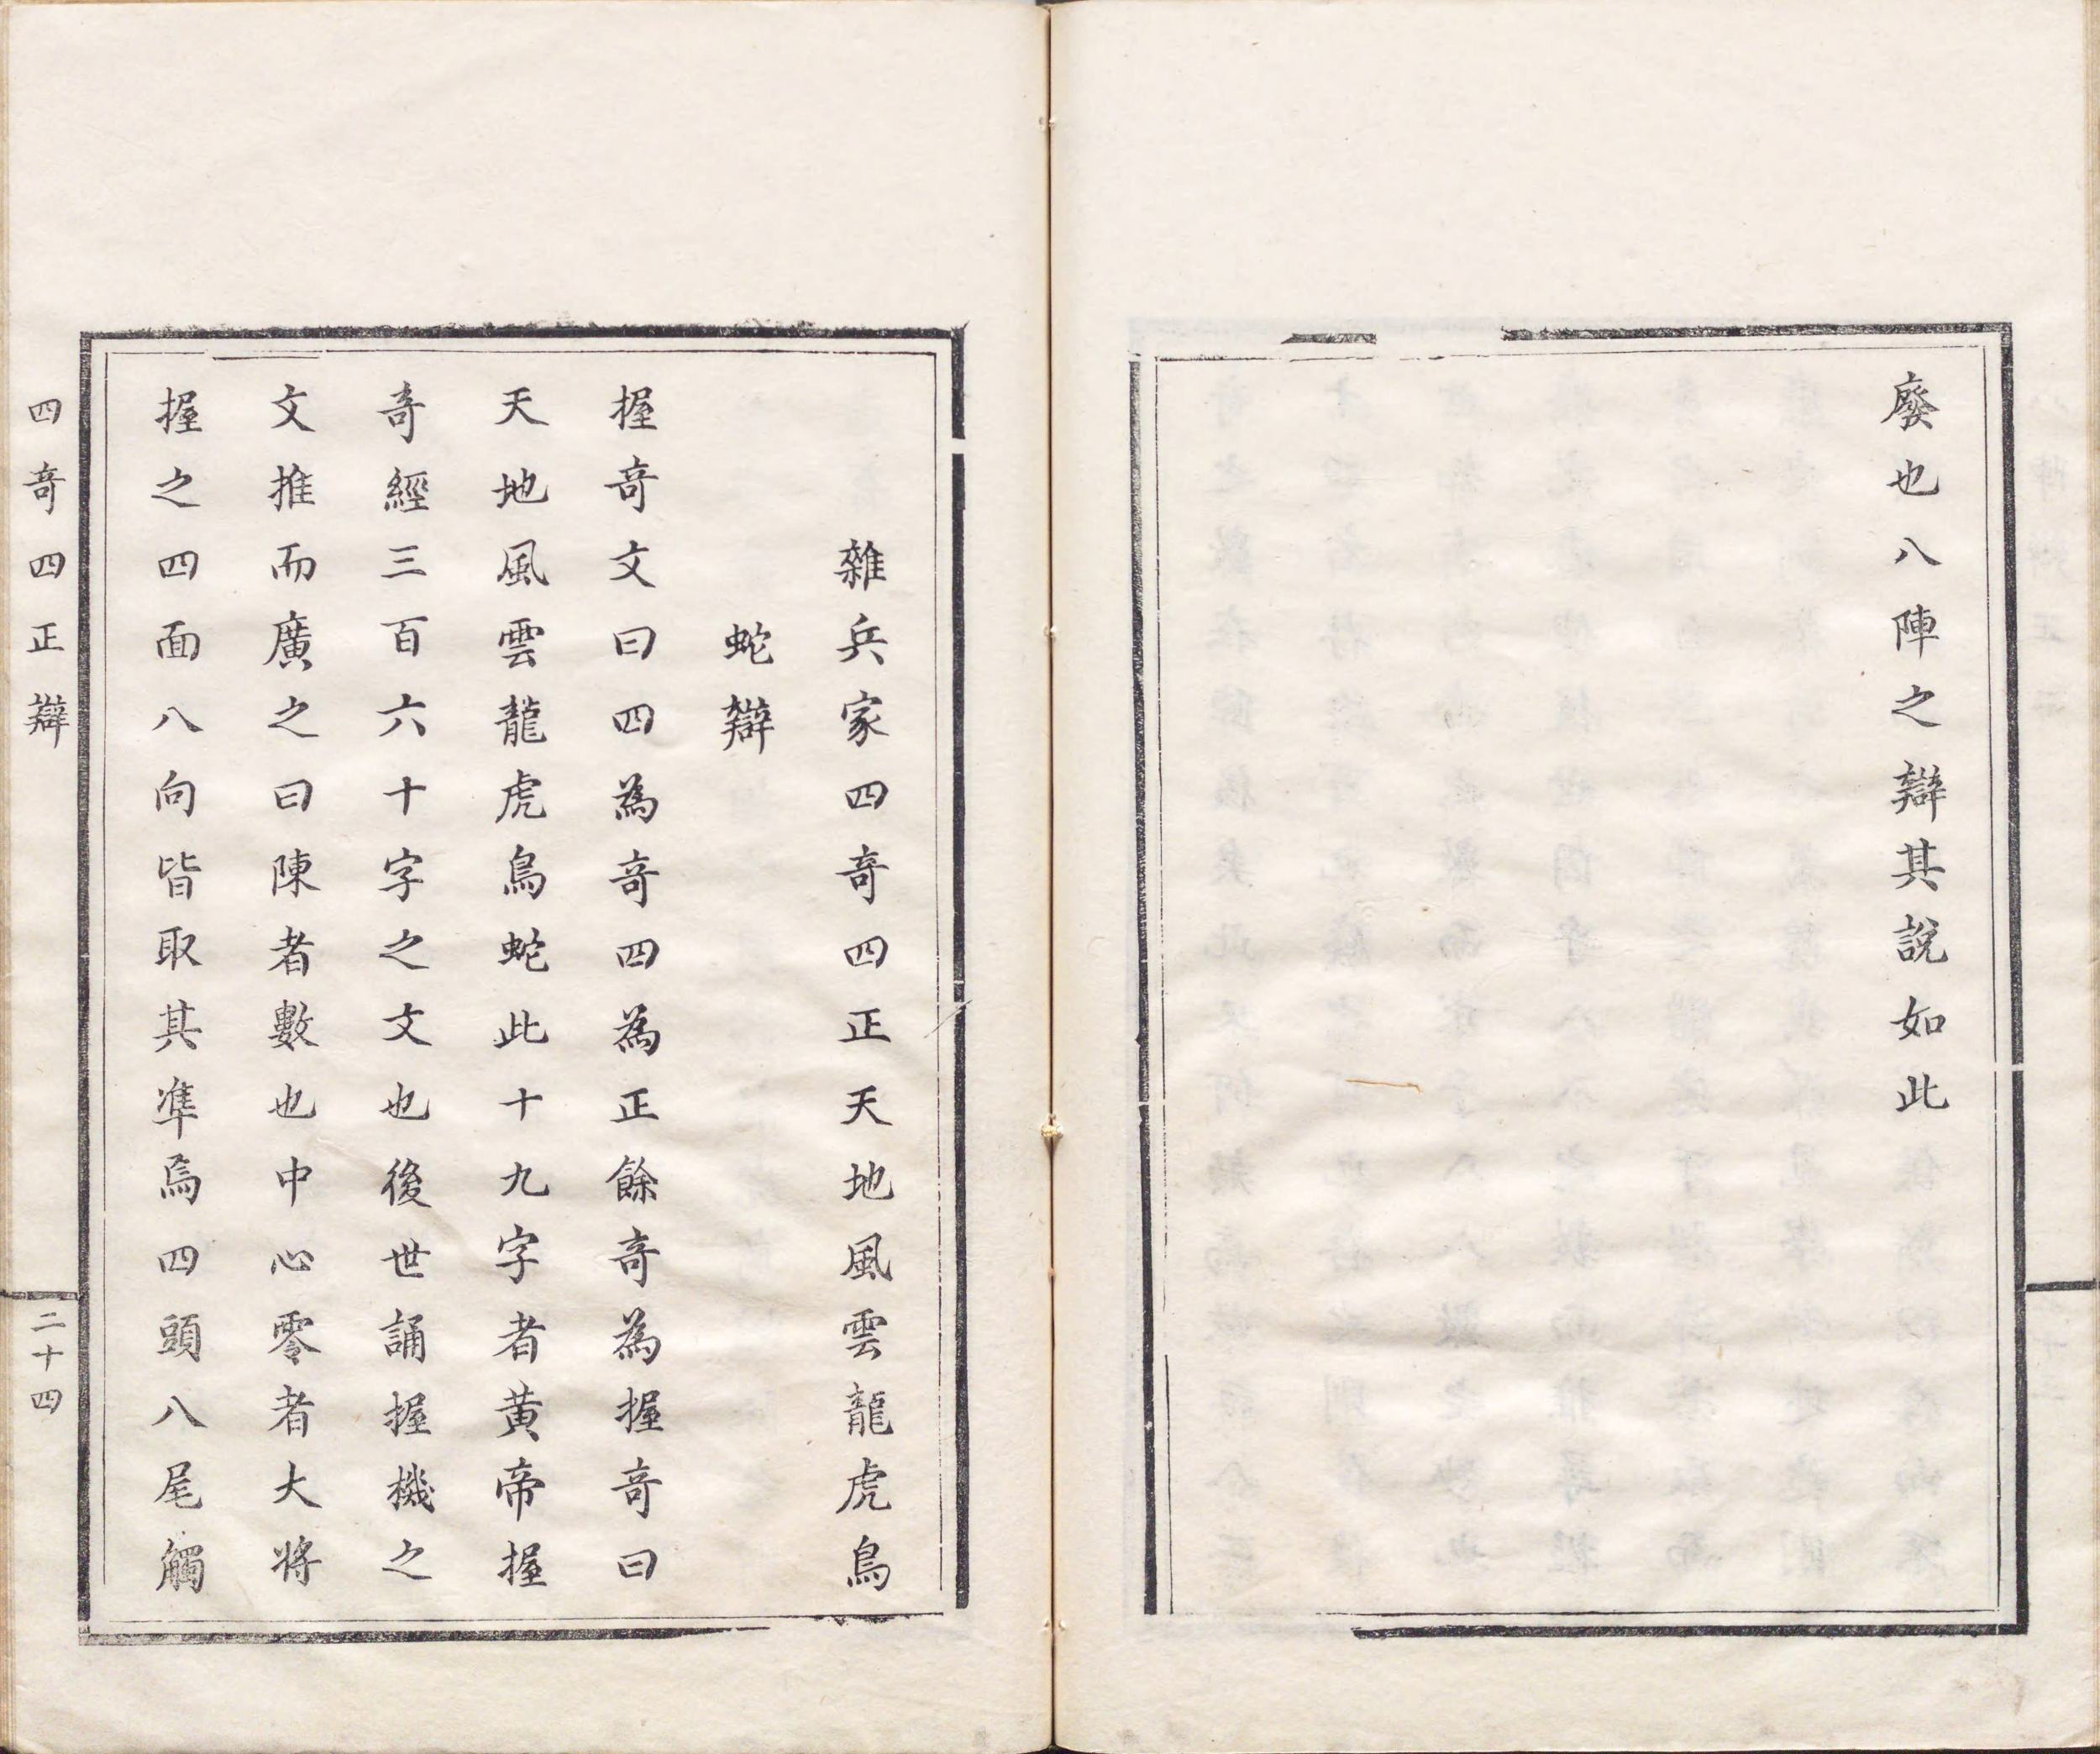 廢也八陣之辯其說如此
雜兵家四奇四正天地風雲龍虎鳥
蛇辯
握奇文曰四為奇四為正餘奇為握奇曰
天地風雲龍虎鳥蛇此十九字者黃帝握
奇經三百六十字之文也後世誦握機之
文推而廣之曰陳者數也中心零者大將
握之四面八向皆取其準焉四頭八尾觸
四奇四正辯
二十四